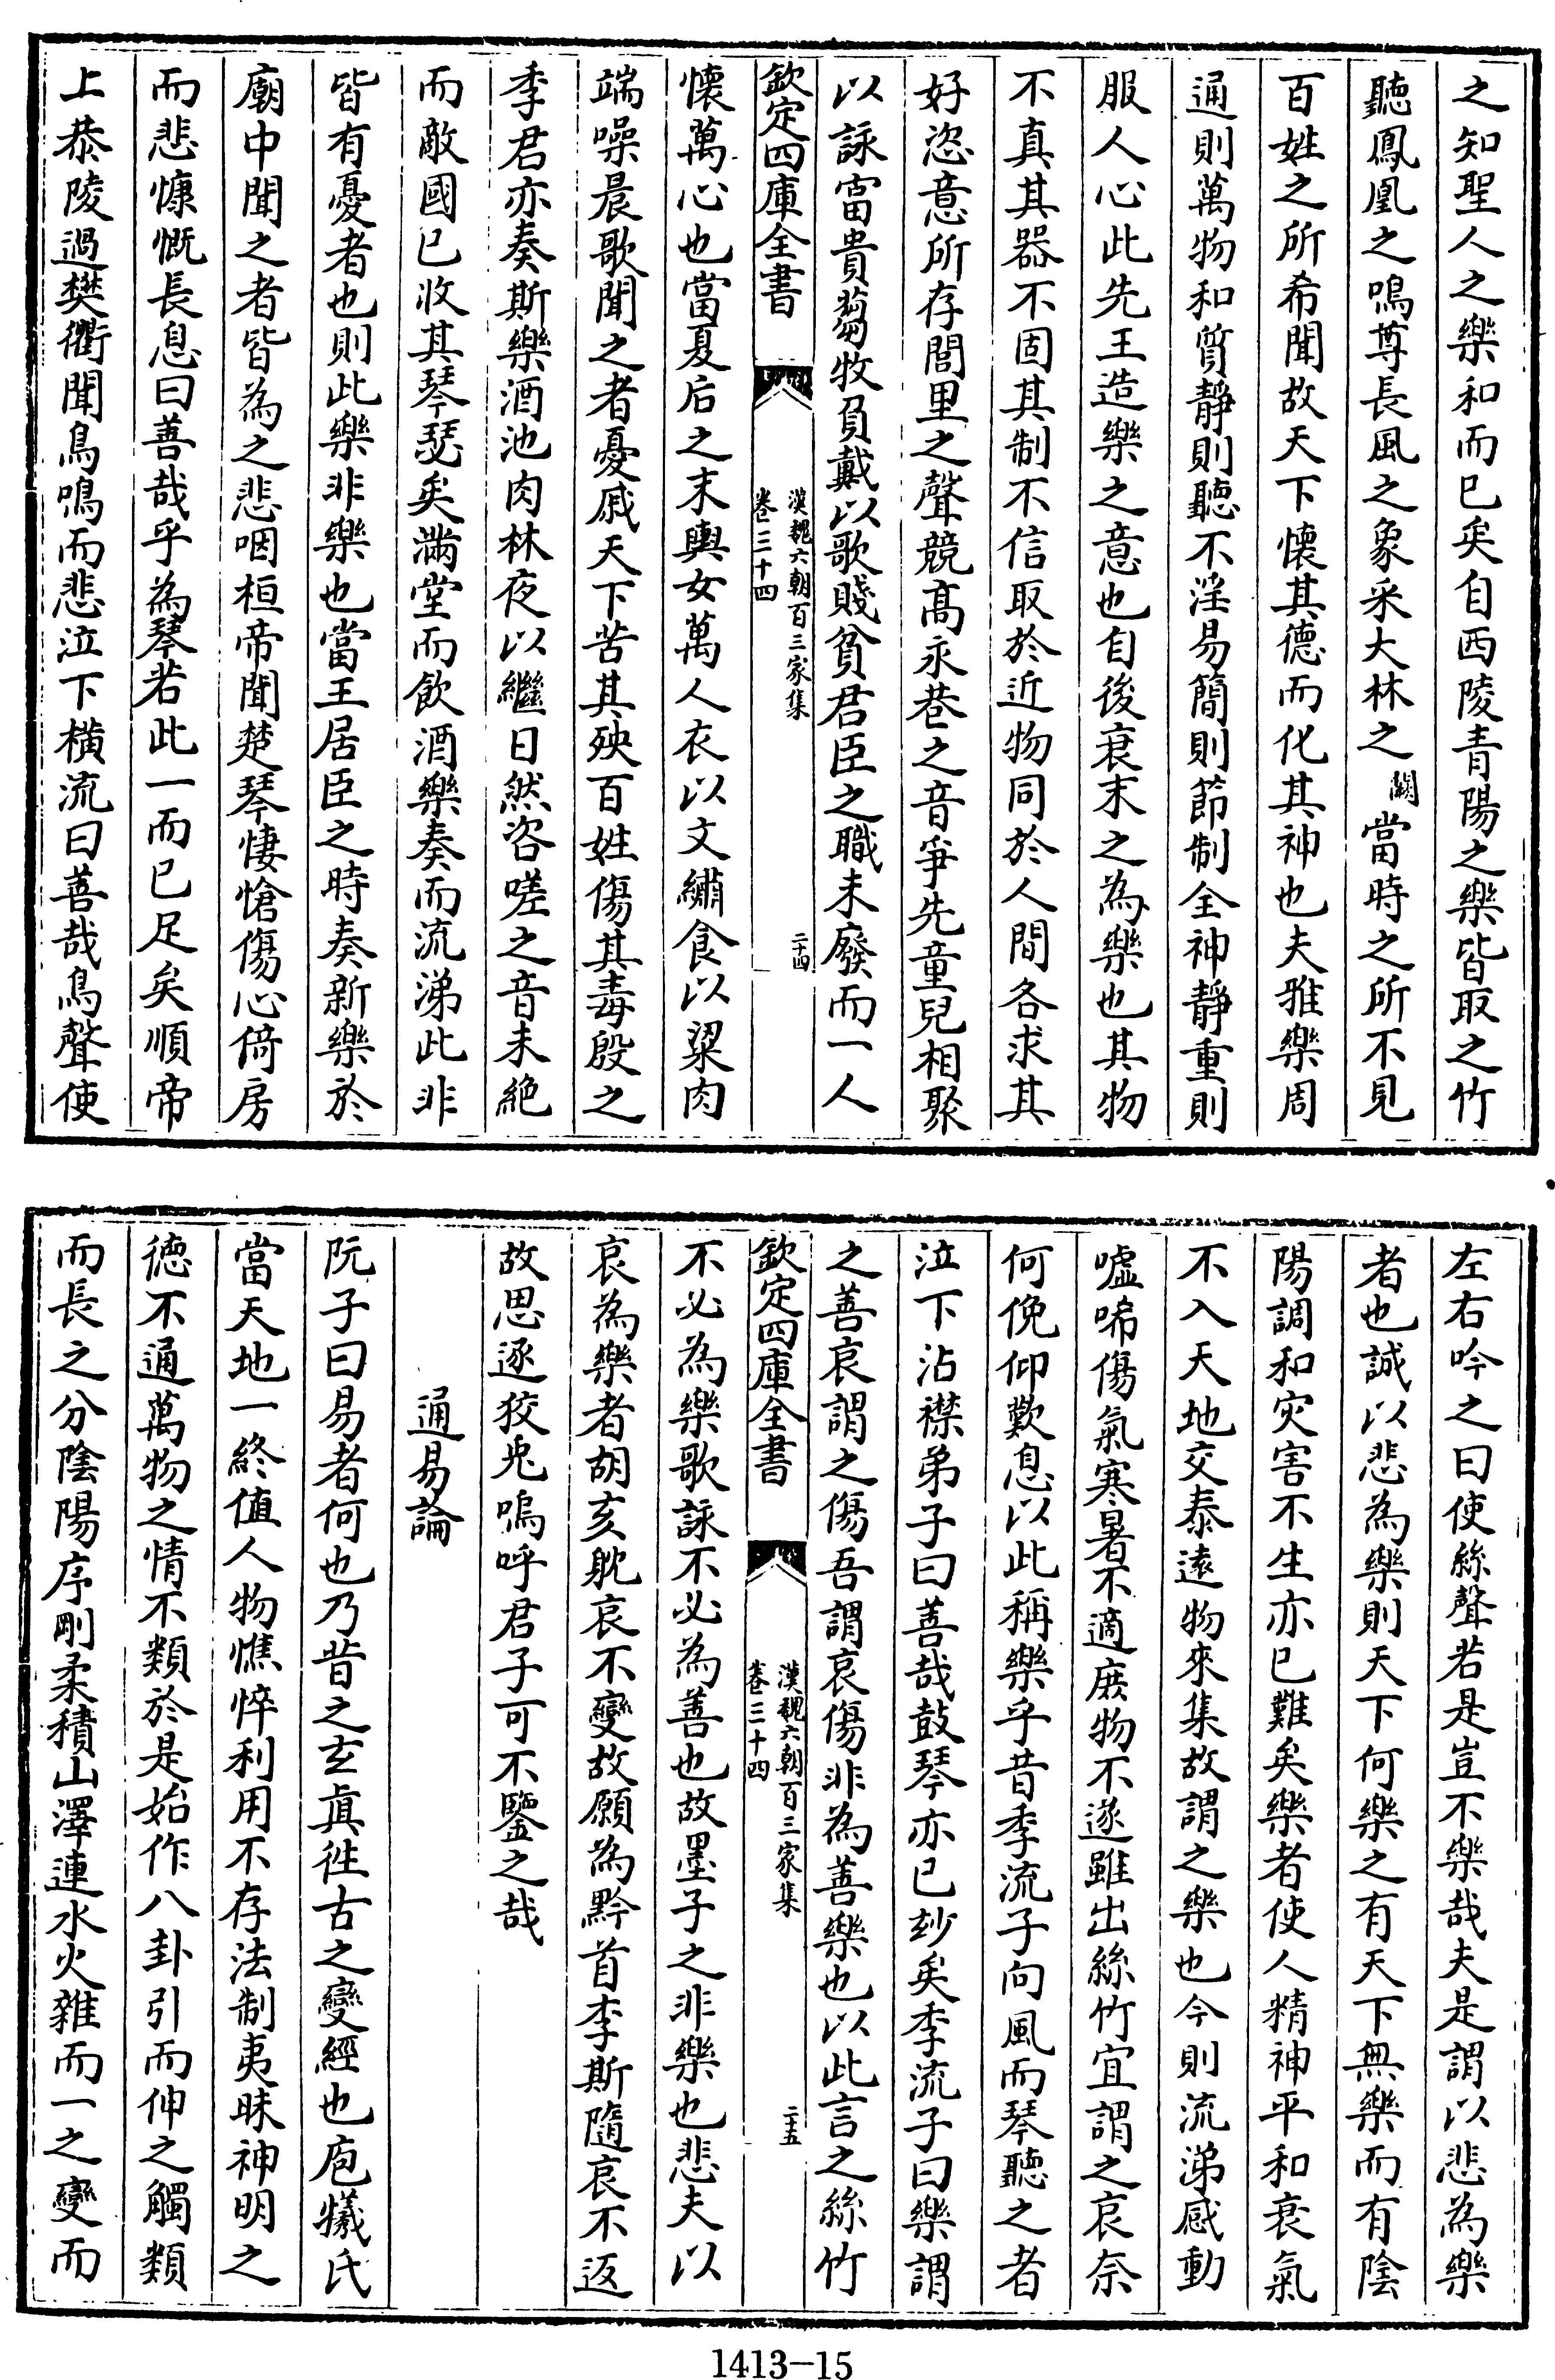 之知聖人之樂和而已矣自西陵青陽之樂皆取之竹
聽鳳凰之鳴尊長風之象采大林之闕當時之所不見
百姓之所希聞故天下懷其德而化其神也夫雅樂周
通則萬物和質靜則聽不淫易簡則節制全神靜重則
服人心此先王造樂之意也自後衰末之為樂也其物
不真其器不固其制不信取於近物同於人間各求其
好恣意所存閭里之聲競高永巷之音爭先童兒相聚
以詠富貴芻牧負戴以歌賤貧君臣之職未廢而一人
欽定四庫全書
漢魏六朝百三家集
卷三十四
二十四
懷萬心也當夏后之末輿女萬人衣以文繡食以粱肉
端噪晨歌聞之者憂戚天下苦其殃百姓傷其毒殷之
季君亦奏斯樂酒池肉林夜以繼日然咨嗟之音未絕
而敵國已收其琴瑟矣滿堂而飲酒樂奏而流涕此非
皆有憂者也則此樂非樂也當王居臣之時奏新樂於
廟中聞之者皆為之悲咽桓帝聞楚琴悽愴傷心倚房
而悲慷慨長息曰善哉乎為琴若此一而已足矣順帝
上恭陵過樊衢聞鳥鳴而悲泣下橫流曰善哉鳥聲使
左右吟之曰使絲聲若是豈不樂哉夫是謂以悲為樂
者也誠以悲為樂則天下何樂之有天下無樂而有陰
陽調和灾害不生亦已難矣樂者使人精神平和衰氣
不入天地交泰遠物來集故謂之樂也今則流涕感動
嘘唏傷氣寒暑不適庶物不遂雖出絲竹宜謂之哀奈
何俛仰歎息以此稱樂乎昔季流子向風而琴聽之者
泣下沾襟弟子曰善哉鼓琴亦已妙矣季流子曰樂謂
之善哀謂之傷吾謂哀傷非為善樂也以此言之絲竹
欽定四庫全書
漢魏六朝百三家集
卷三十四
二十五
不必為樂歌詠不必為善也故墨子之非樂也悲夫以
哀為樂者胡亥耽哀不變故願為黔首李斯隨哀不返
故思逐狡兎嗚呼君子可不鑒之哉
通易論
阮子曰易者何也乃昔之玄眞徃古之變經也庖犧氏
當天地一終值人物憔悴利用不存法制夷昧神明之
德不通萬物之情不類於是始作八卦引而伸之觸類
而長之分陰陽序剛柔積山澤連水火雜而一之變而
1413-15